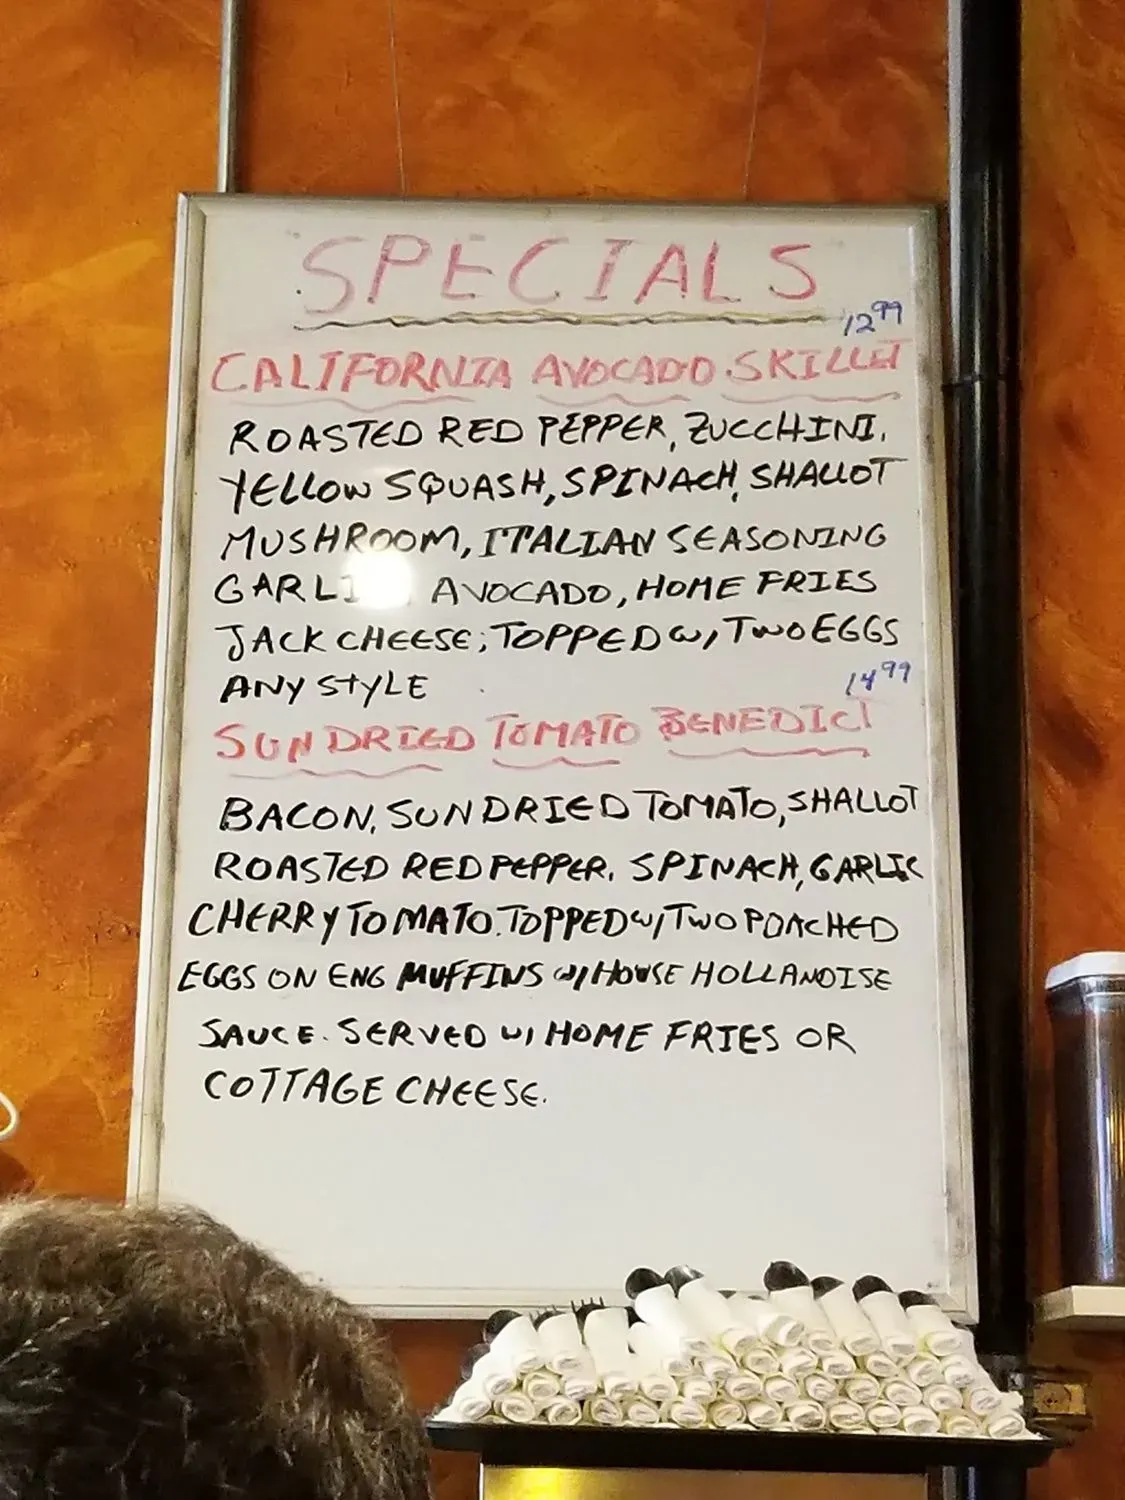 SPECIALS
12.99
CALIFORNIA AVOCADO SKILLET
ROASTED RED PEPPER, ZUCCHINI,
YELLOW SQUASH, SPINACH, SHALLOT
MUSHROOM, ITALIAN SEASONING
GARLI AVOCADO, HOME FRIES
JACK CHEESE; TOPPED W/ TWO EGGS
ANY STYLE
14.99
SUNDRIED TOMATO BENEDICT
BACON, SUNDRIED TOMATO, SHALLOT
ROASTED RED PEPPER, SPINACH, GARLIC
CHERRY TOMATO. TOPPED W/ TWO POACHED
EGGS ON ENG MUFFINS W/ HOUSE HOLLANDISE
SAUCE. SERVED W/ HOME FRIES OR
COTTAGE CHEESE.